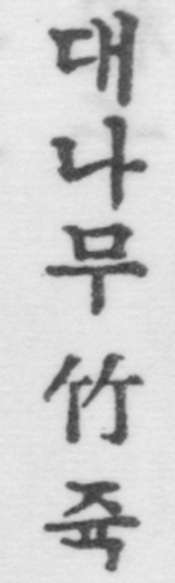 대나무 竹 쥭